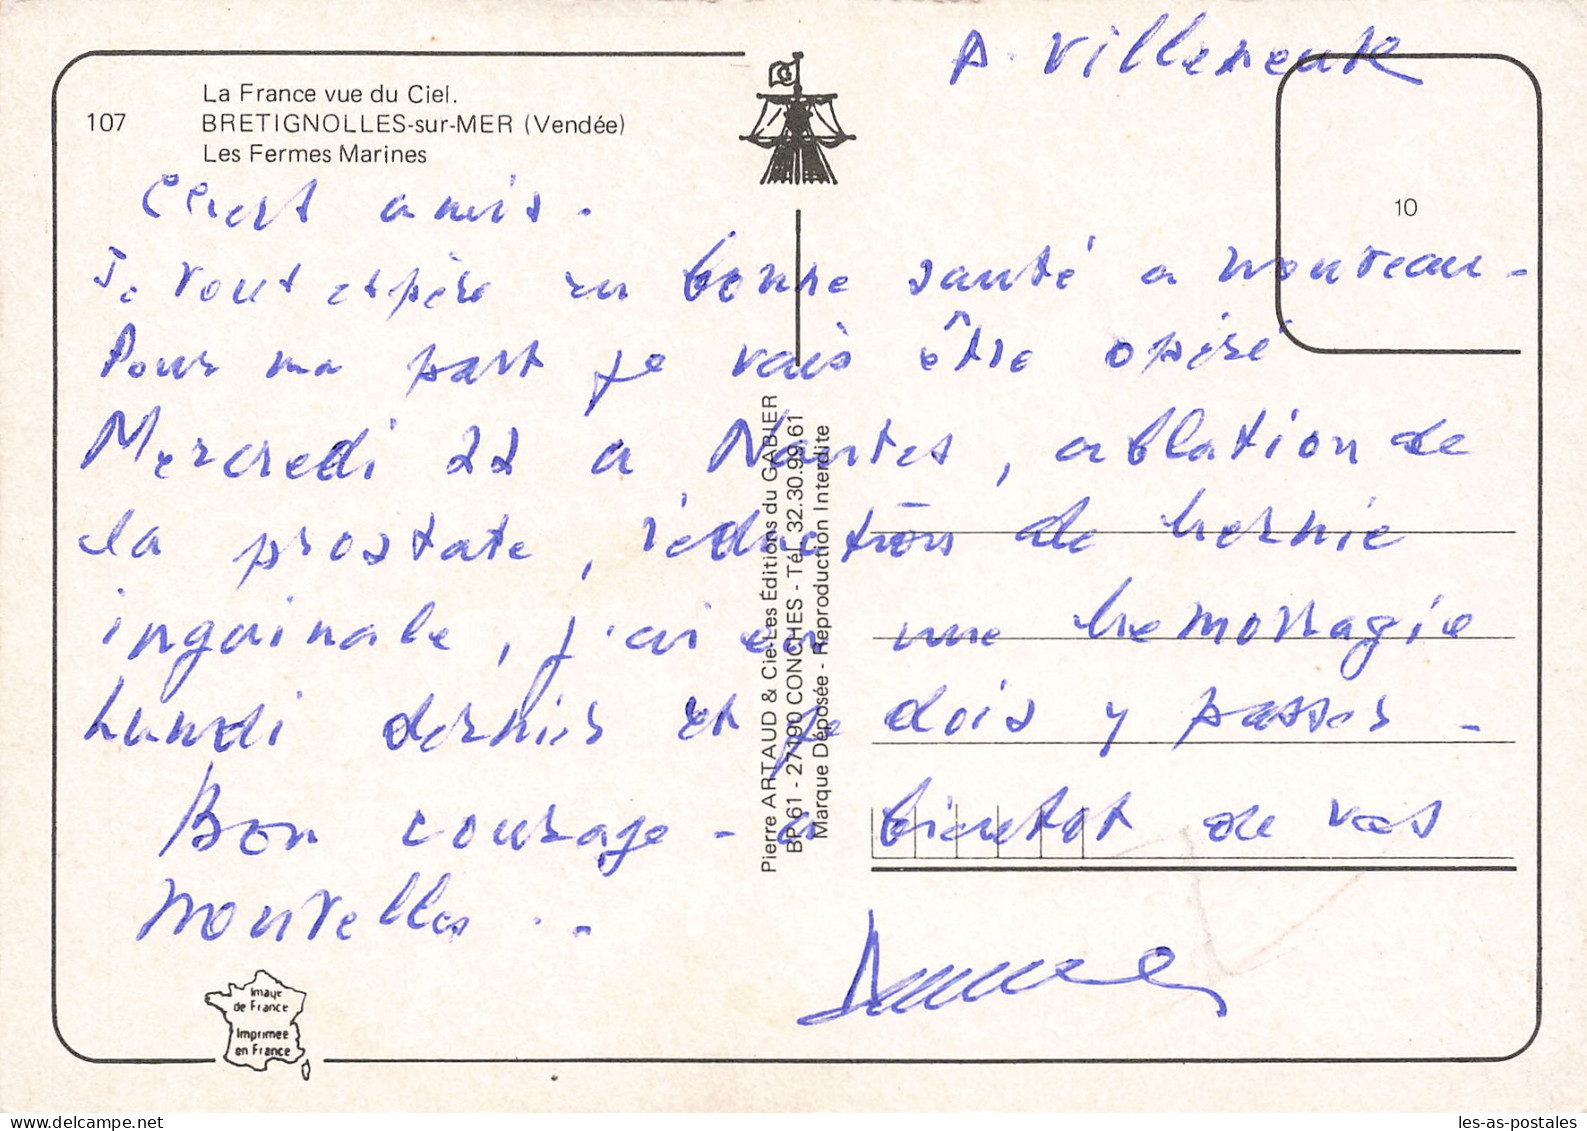 P. Villeneuve
La France vue du Ciel.
107 BRETIGNOLLES-sur-MER (Vendée)
Les Fermes Marines
10
Chers amis.
Je vous espère en bonne santé a nouveau -
Pour ma part je vais être opéré
Mercredi 22 a Nantes, ablation de
la prostate, réduction de hernie
inguinale, j'ai eu une hemorragie
Lundi dernier et je dois y passer -
Bon courage - a bientot de vos
nouvelles . -
Pierre ARTAUD & Cie-Les Éditions du GABIER
BP 61 - 27190 CONCHES - Tél. 32.30.99.61
Marque Déposée - Reproduction Interdite
Image
de France
Imprimée
en France
les-as-postales